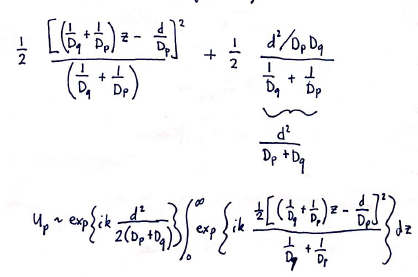 \frac{1}{2} \frac{\left[\left(\frac{1}{D_q}+\frac{1}{D_p}\right)z - \frac{d}{D_p}\right]^2}{\left(\frac{1}{D_q}+\frac{1}{D_p}\right)} + \frac{1}{2} \frac{d^2/D_p D_q}{\frac{1}{D_q}+\frac{1}{D_p}}
\frac{d^2}{D_p+D_q}
u_p \sim \exp\left\{ik \frac{d^2}{2(D_p+D_q)}\right\} \int_0^\infty \exp\left\{ik \frac{\frac{1}{2}\left[\left(\frac{1}{D_q}+\frac{1}{D_p}\right)z - \frac{d}{D_p}\right]^2}{\frac{1}{D_q}+\frac{1}{D_p}}\right\} dz